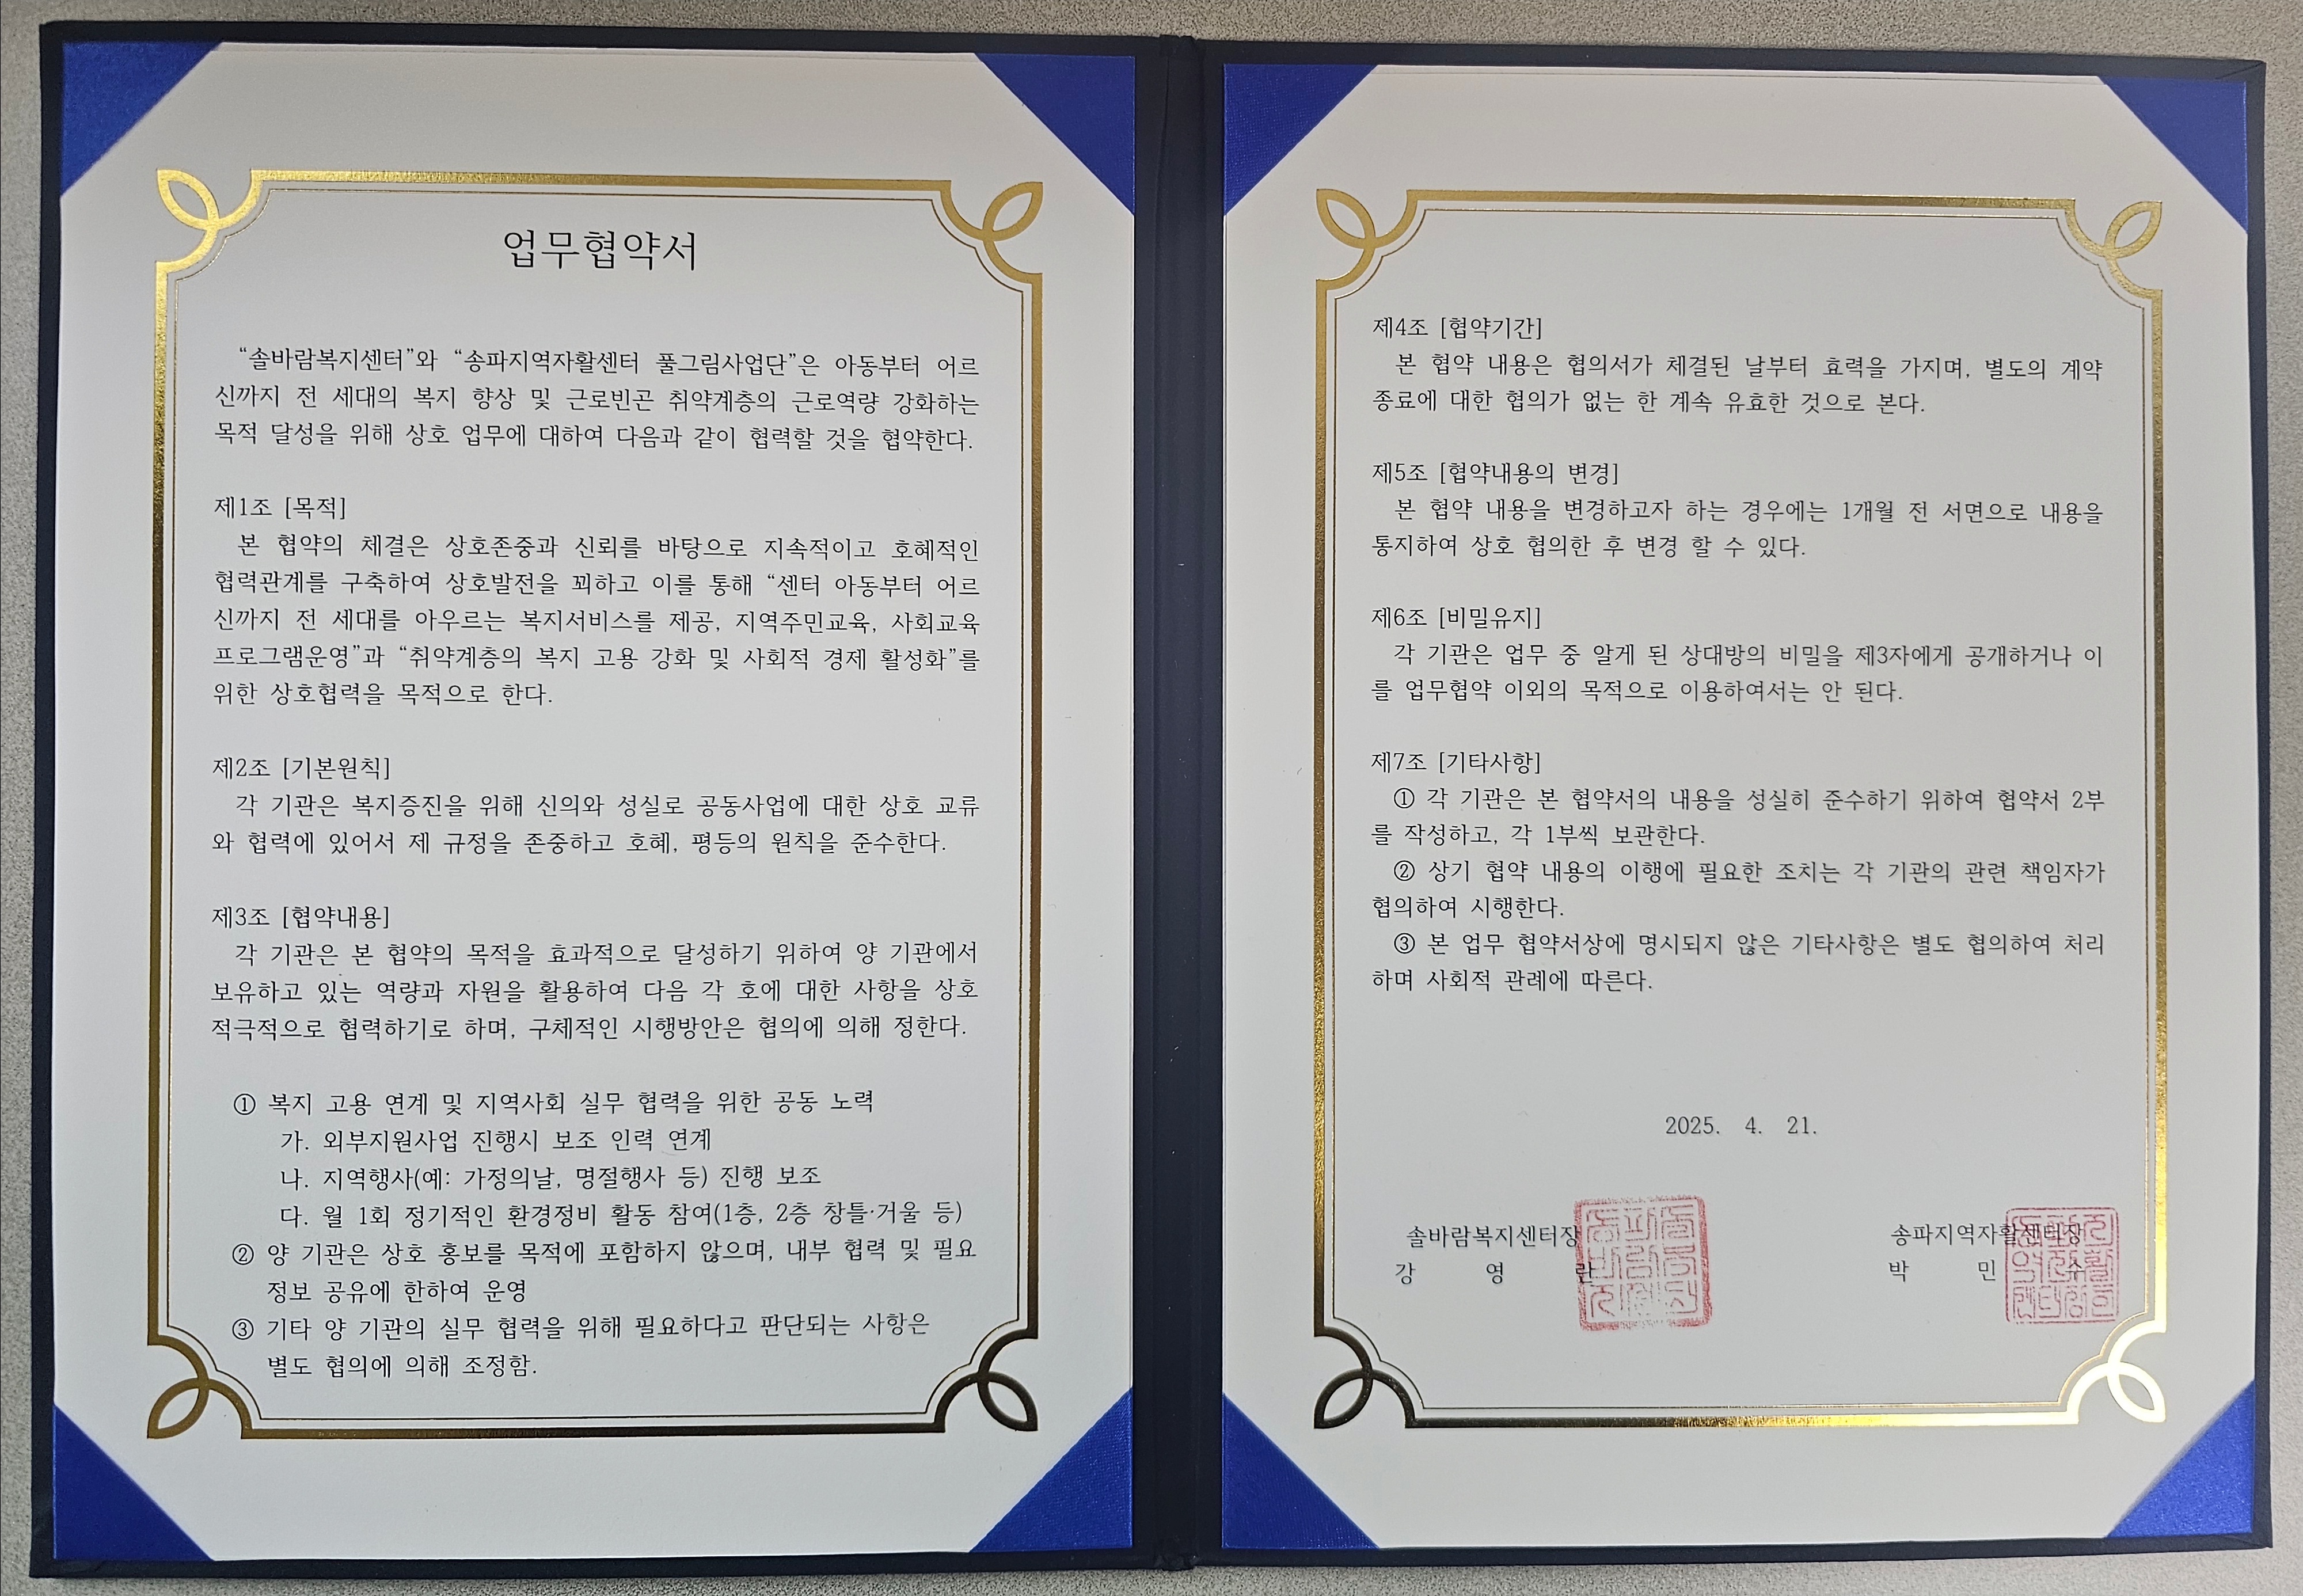 업무협약서
“솔바람복지센터”와 “송파지역자활센터 풀그림사업단”은 아동부터 어르
신까지 전 세대의 복지 향상 및 근로빈곤 취약계층의 근로역량 강화하는
목적 달성을 위해 상호 업무에 대하여 다음과 같이 협력할 것을 협약한다.
제1조 [목적]
본 협약의 체결은 상호존중과 신뢰를 바탕으로 지속적이고 호혜적인
협력관계를 구축하여 상호발전을 꾀하고 이를 통해 “센터 아동부터 어르
신까지 전 세대를 아우르는 복지서비스를 제공, 지역주민교육, 사회교육
프로그램운영”과 “취약계층의 복지 고용 강화 및 사회적 경제 활성화”를
위한 상호협력을 목적으로 한다.
제2조 [기본원칙]
각 기관은 복지증진을 위해 신의와 성실로 공동사업에 대한 상호 교류
와 협력에 있어서 제 규정을 존중하고 호혜, 평등의 원칙을 준수한다.
제3조 [협약내용]
각 기관은 본 협약의 목적을 효과적으로 달성하기 위하여 양 기관에서
보유하고 있는 역량과 자원을 활용하여 다음 각 호에 대한 사항을 상호
적극적으로 협력하기로 하며, 구체적인 시행방안은 협의에 의해 정한다.
① 복지 고용 연계 및 지역사회 실무 협력을 위한 공동 노력
가. 외부지원사업 진행시 보조 인력 연계
나. 지역행사(예: 가정의날, 명절행사 등) 진행 보조
다. 월 1회 정기적인 환경정비 활동 참여(1층, 2층 창틀·거울 등)
② 양 기관은 상호 홍보를 목적에 포함하지 않으며, 내부 협력 및 필요
정보 공유에 한하여 운영
③ 기타 양 기관의 실무 협력을 위해 필요하다고 판단되는 사항은
별도 협의에 의해 조정함.
제4조 [협약기간]
본 협약 내용은 협의서가 체결된 날부터 효력을 가지며, 별도의 계약
종료에 대한 협의가 없는 한 계속 유효한 것으로 본다.
제5조 [협약내용의 변경]
본 협약 내용을 변경하고자 하는 경우에는 1개월 전 서면으로 내용을
통지하여 상호 협의한 후 변경 할 수 있다.
제6조 [비밀유지]
각 기관은 업무 중 알게 된 상대방의 비밀을 제3자에게 공개하거나 이
를 업무협약 이외의 목적으로 이용하여서는 안 된다.
제7조 [기타사항]
① 각 기관은 본 협약서의 내용을 성실히 준수하기 위하여 협약서 2부
를 작성하고, 각 1부씩 보관한다.
② 상기 협약 내용의 이행에 필요한 조치는 각 기관의 관련 책임자가
협의하여 시행한다.
③ 본 업무 협약서상에 명시되지 않은 기타사항은 별도 협의하여 처리
하며 사회적 관례에 따른다.
2025. 4. 21.
솔바람복지센터장
강 영 란
송파지역자활센터장
박 민 수